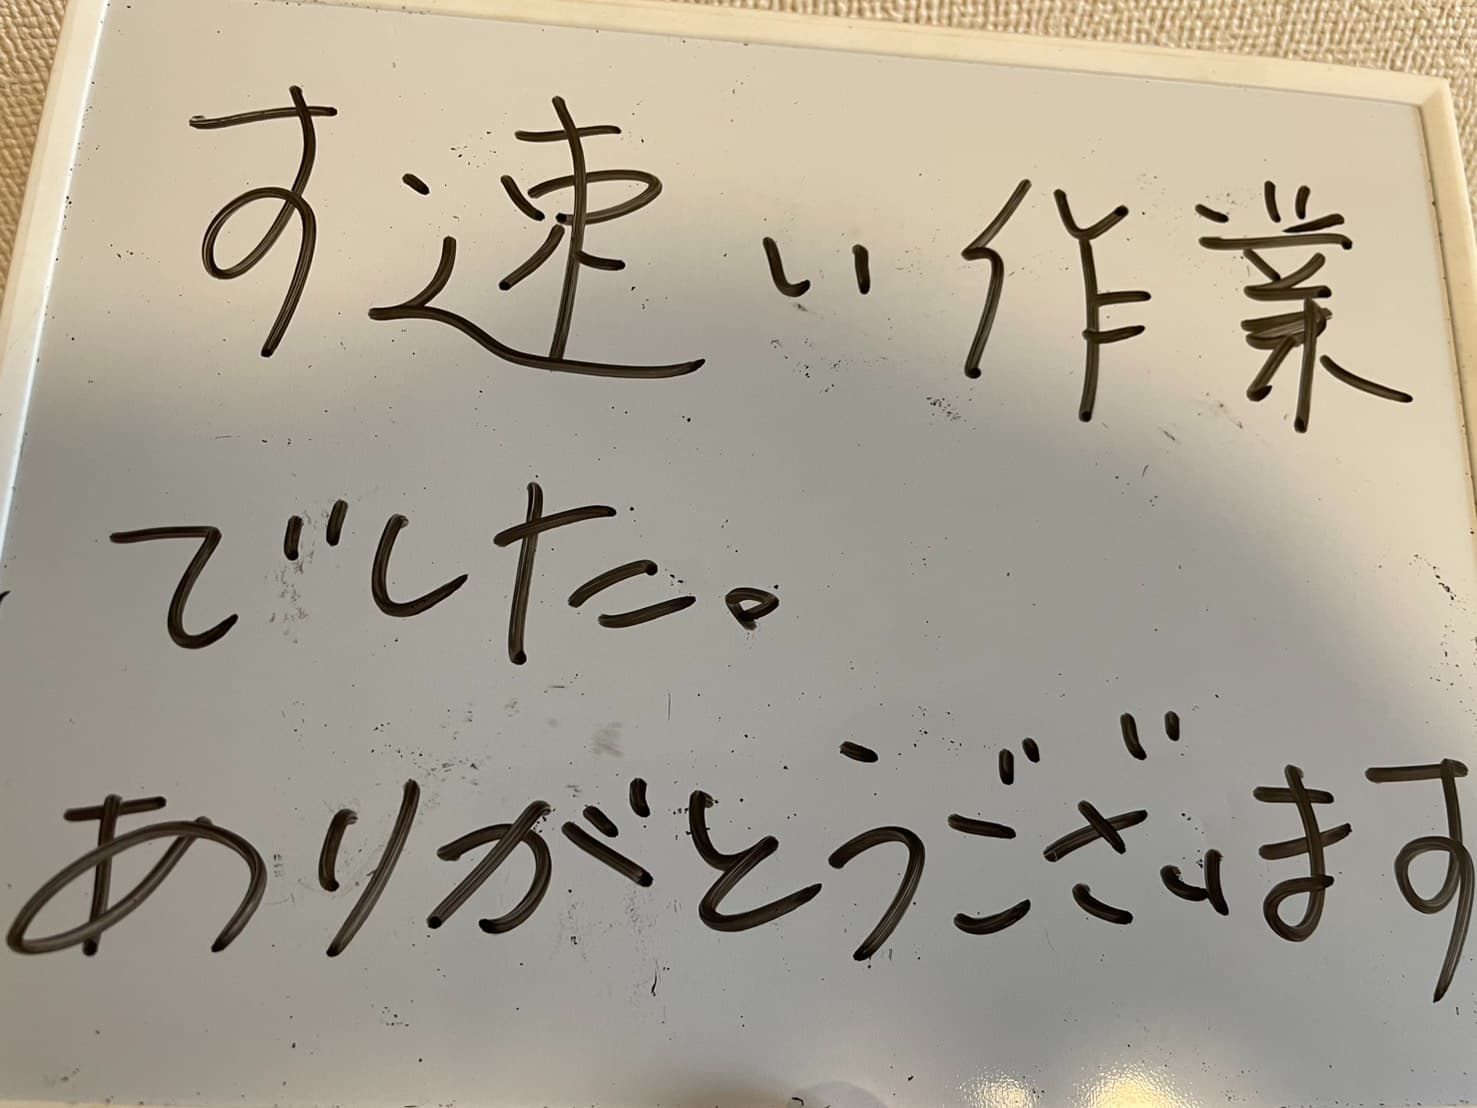 す速い作業
でした。
ありがとうございます